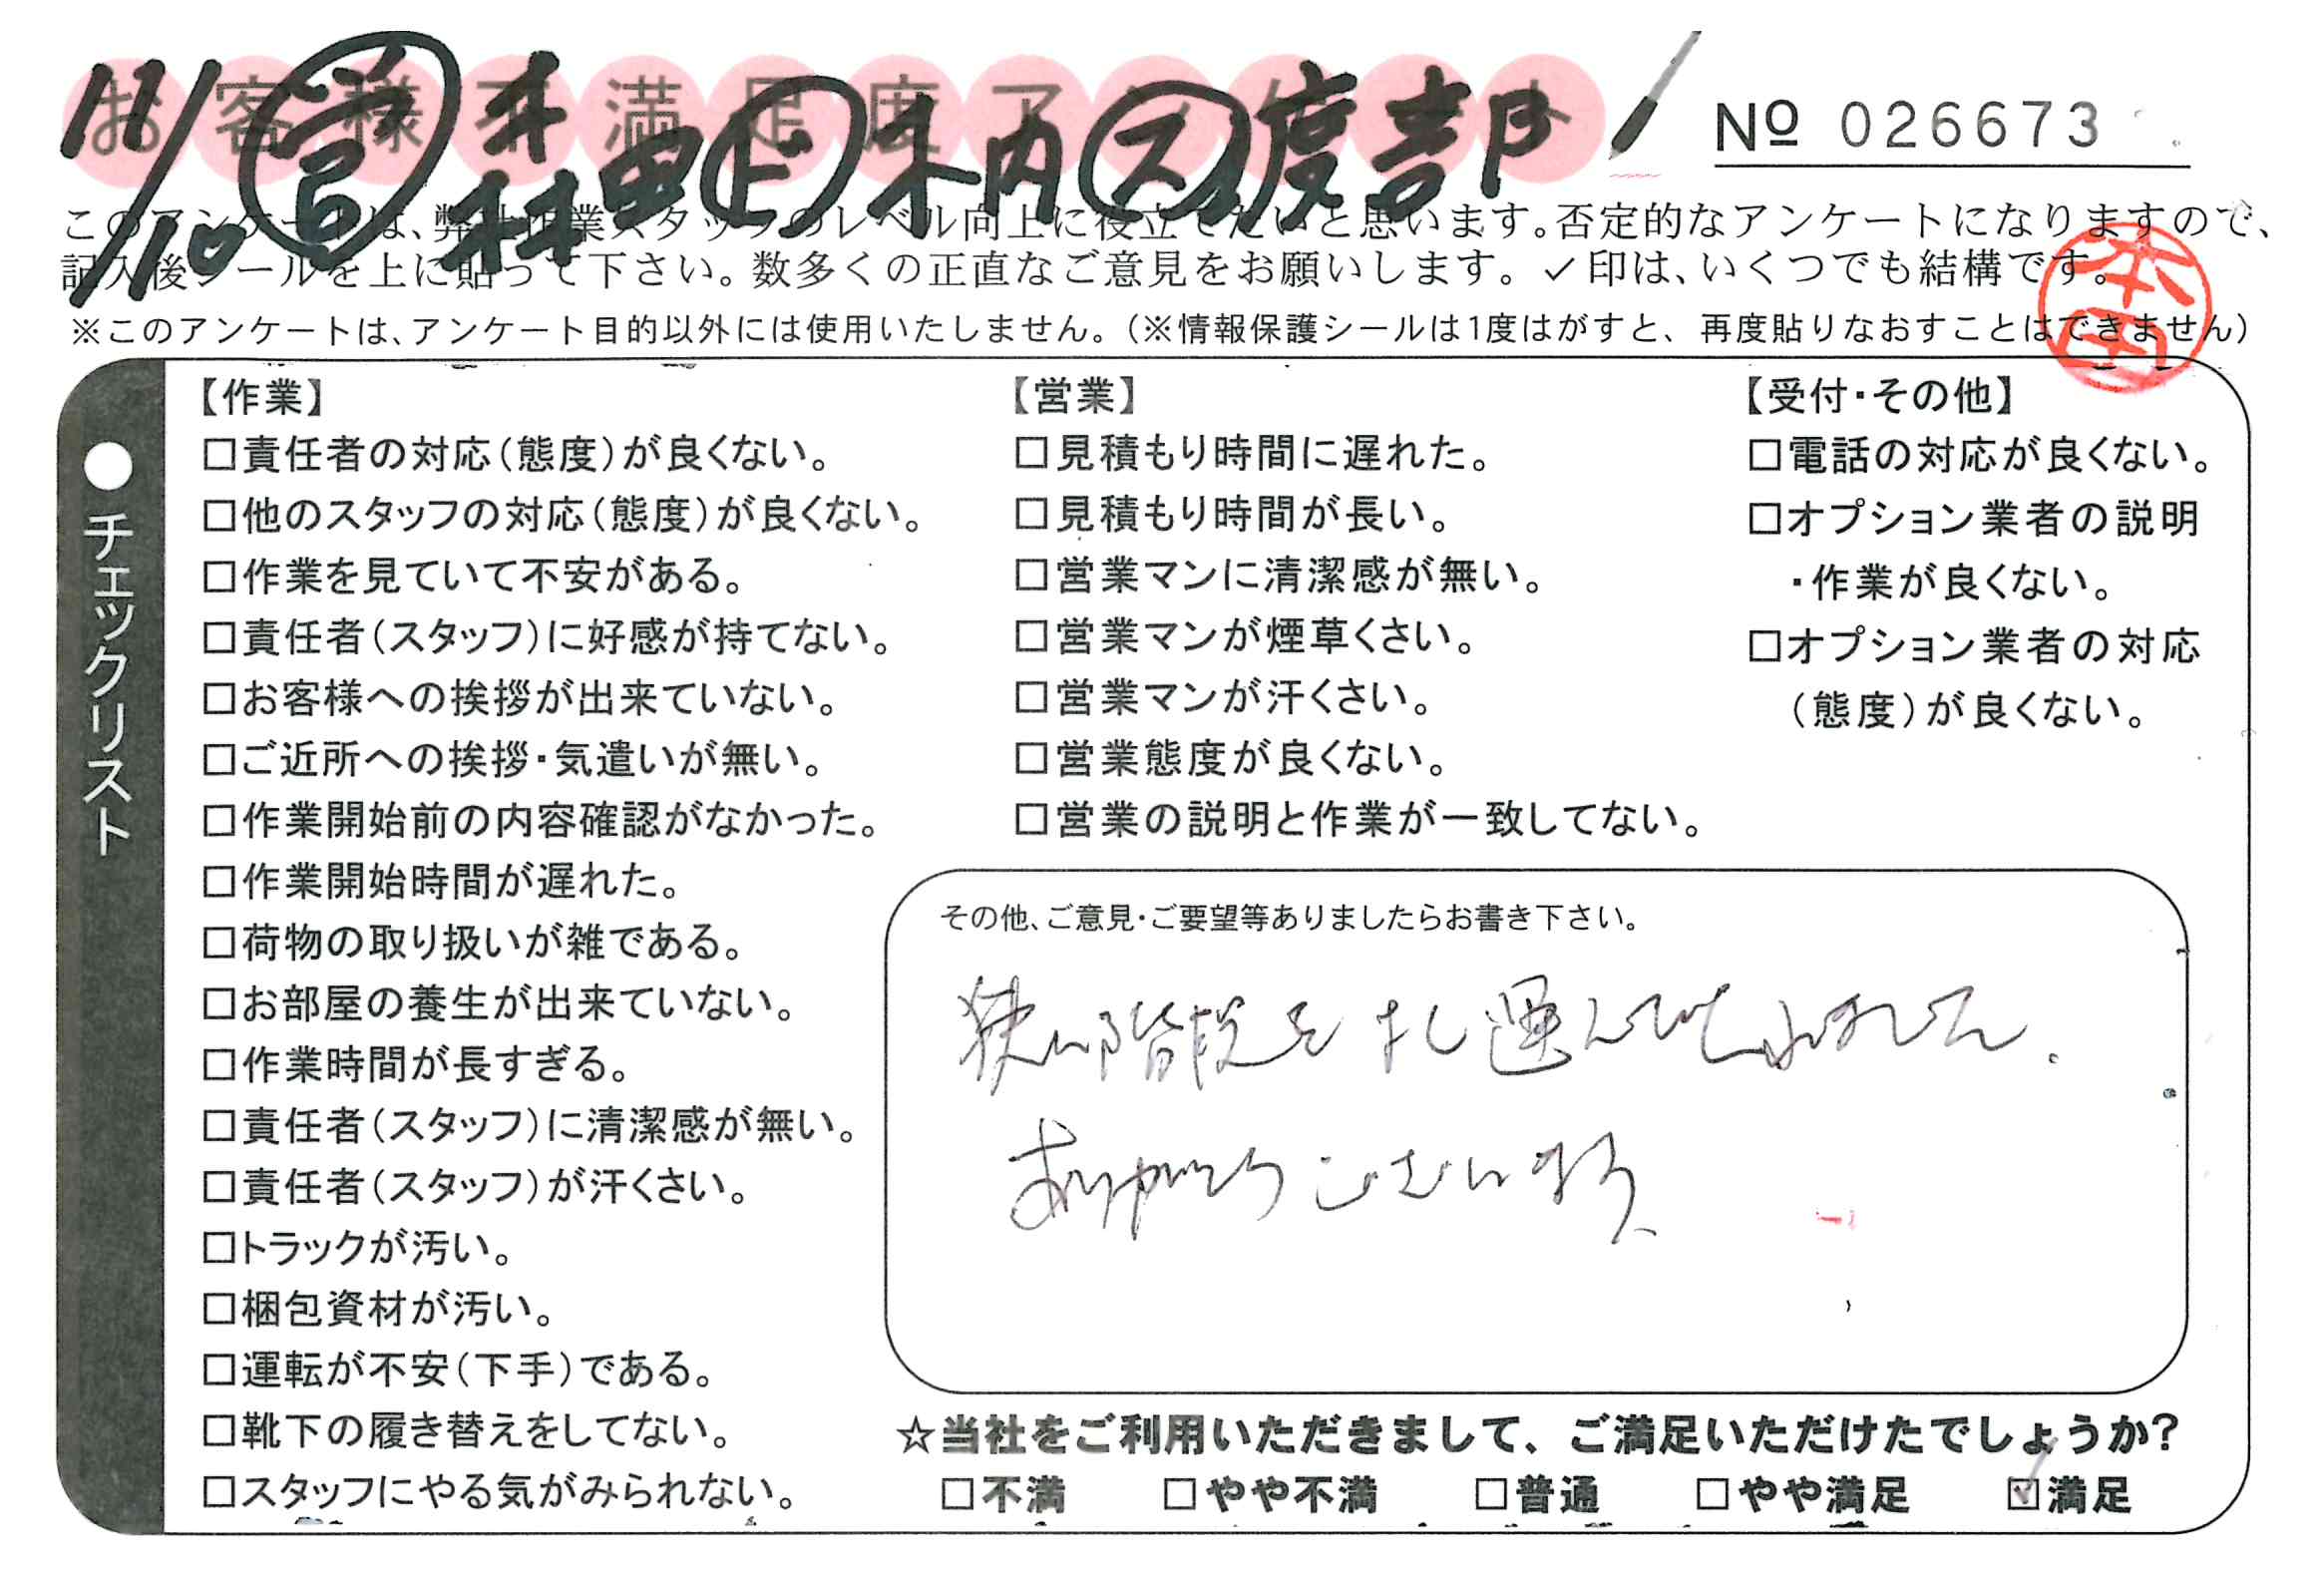 お客様不満足度アンケート
№ 026673
11/10 営 ド 木内 ス 渡部
このアンケートは、弊社作業スタッフのレベル向上に役立てたいと思います。否定的なアンケートになりますので、
記入後シールを上に貼って下さい。数多くの正直なご意見をお願いします。✓印は、いくつでも結構です。
本田
※このアンケートは、アンケート目的以外には使用いたしません。(※情報保護シールは1度はがすと、再度貼りなおすことはできません)
●チェックリスト
【作業】
□責任者の対応(態度)が良くない。
□他のスタッフの対応(態度)が良くない。
□作業を見ていて不安がある。
□責任者(スタッフ)に好感が持てない。
□お客様への挨拶が出来ていない。
□ご近所への挨拶・気遣いが無い。
□作業開始前の内容確認がなかった。
□作業開始時間が遅れた。
□荷物の取り扱いが雑である。
□お部屋の養生が出来ていない。
□作業時間が長すぎる。
□責任者(スタッフ)に清潔感が無い。
□責任者(スタッフ)が汗くさい。
□トラックが汚い。
□梱包資材が汚い。
□運転が不安(下手)である。
□靴下の履き替えをしてない。
□スタッフにやる気がみられない。
【営業】
□見積もり時間に遅れた。
□見積もり時間が長い。
□営業マンに清潔感が無い。
□営業マンが煙草くさい。
□営業マンが汗くさい。
□営業態度が良くない。
□営業の説明と作業が一致してない。
【受付・その他】
□電話の対応が良くない。
□オプション業者の説明
・作業が良くない。
□オプション業者の対応
(態度)が良くない。
その他、ご意見・ご要望等ありましたらお書き下さい。
狭い階段を 運んで
ありがとうございます
☆当社をご利用いただきまして、ご満足いただけたでしょうか?
□不満 □やや不満 □普通 □やや満足 ☑満足